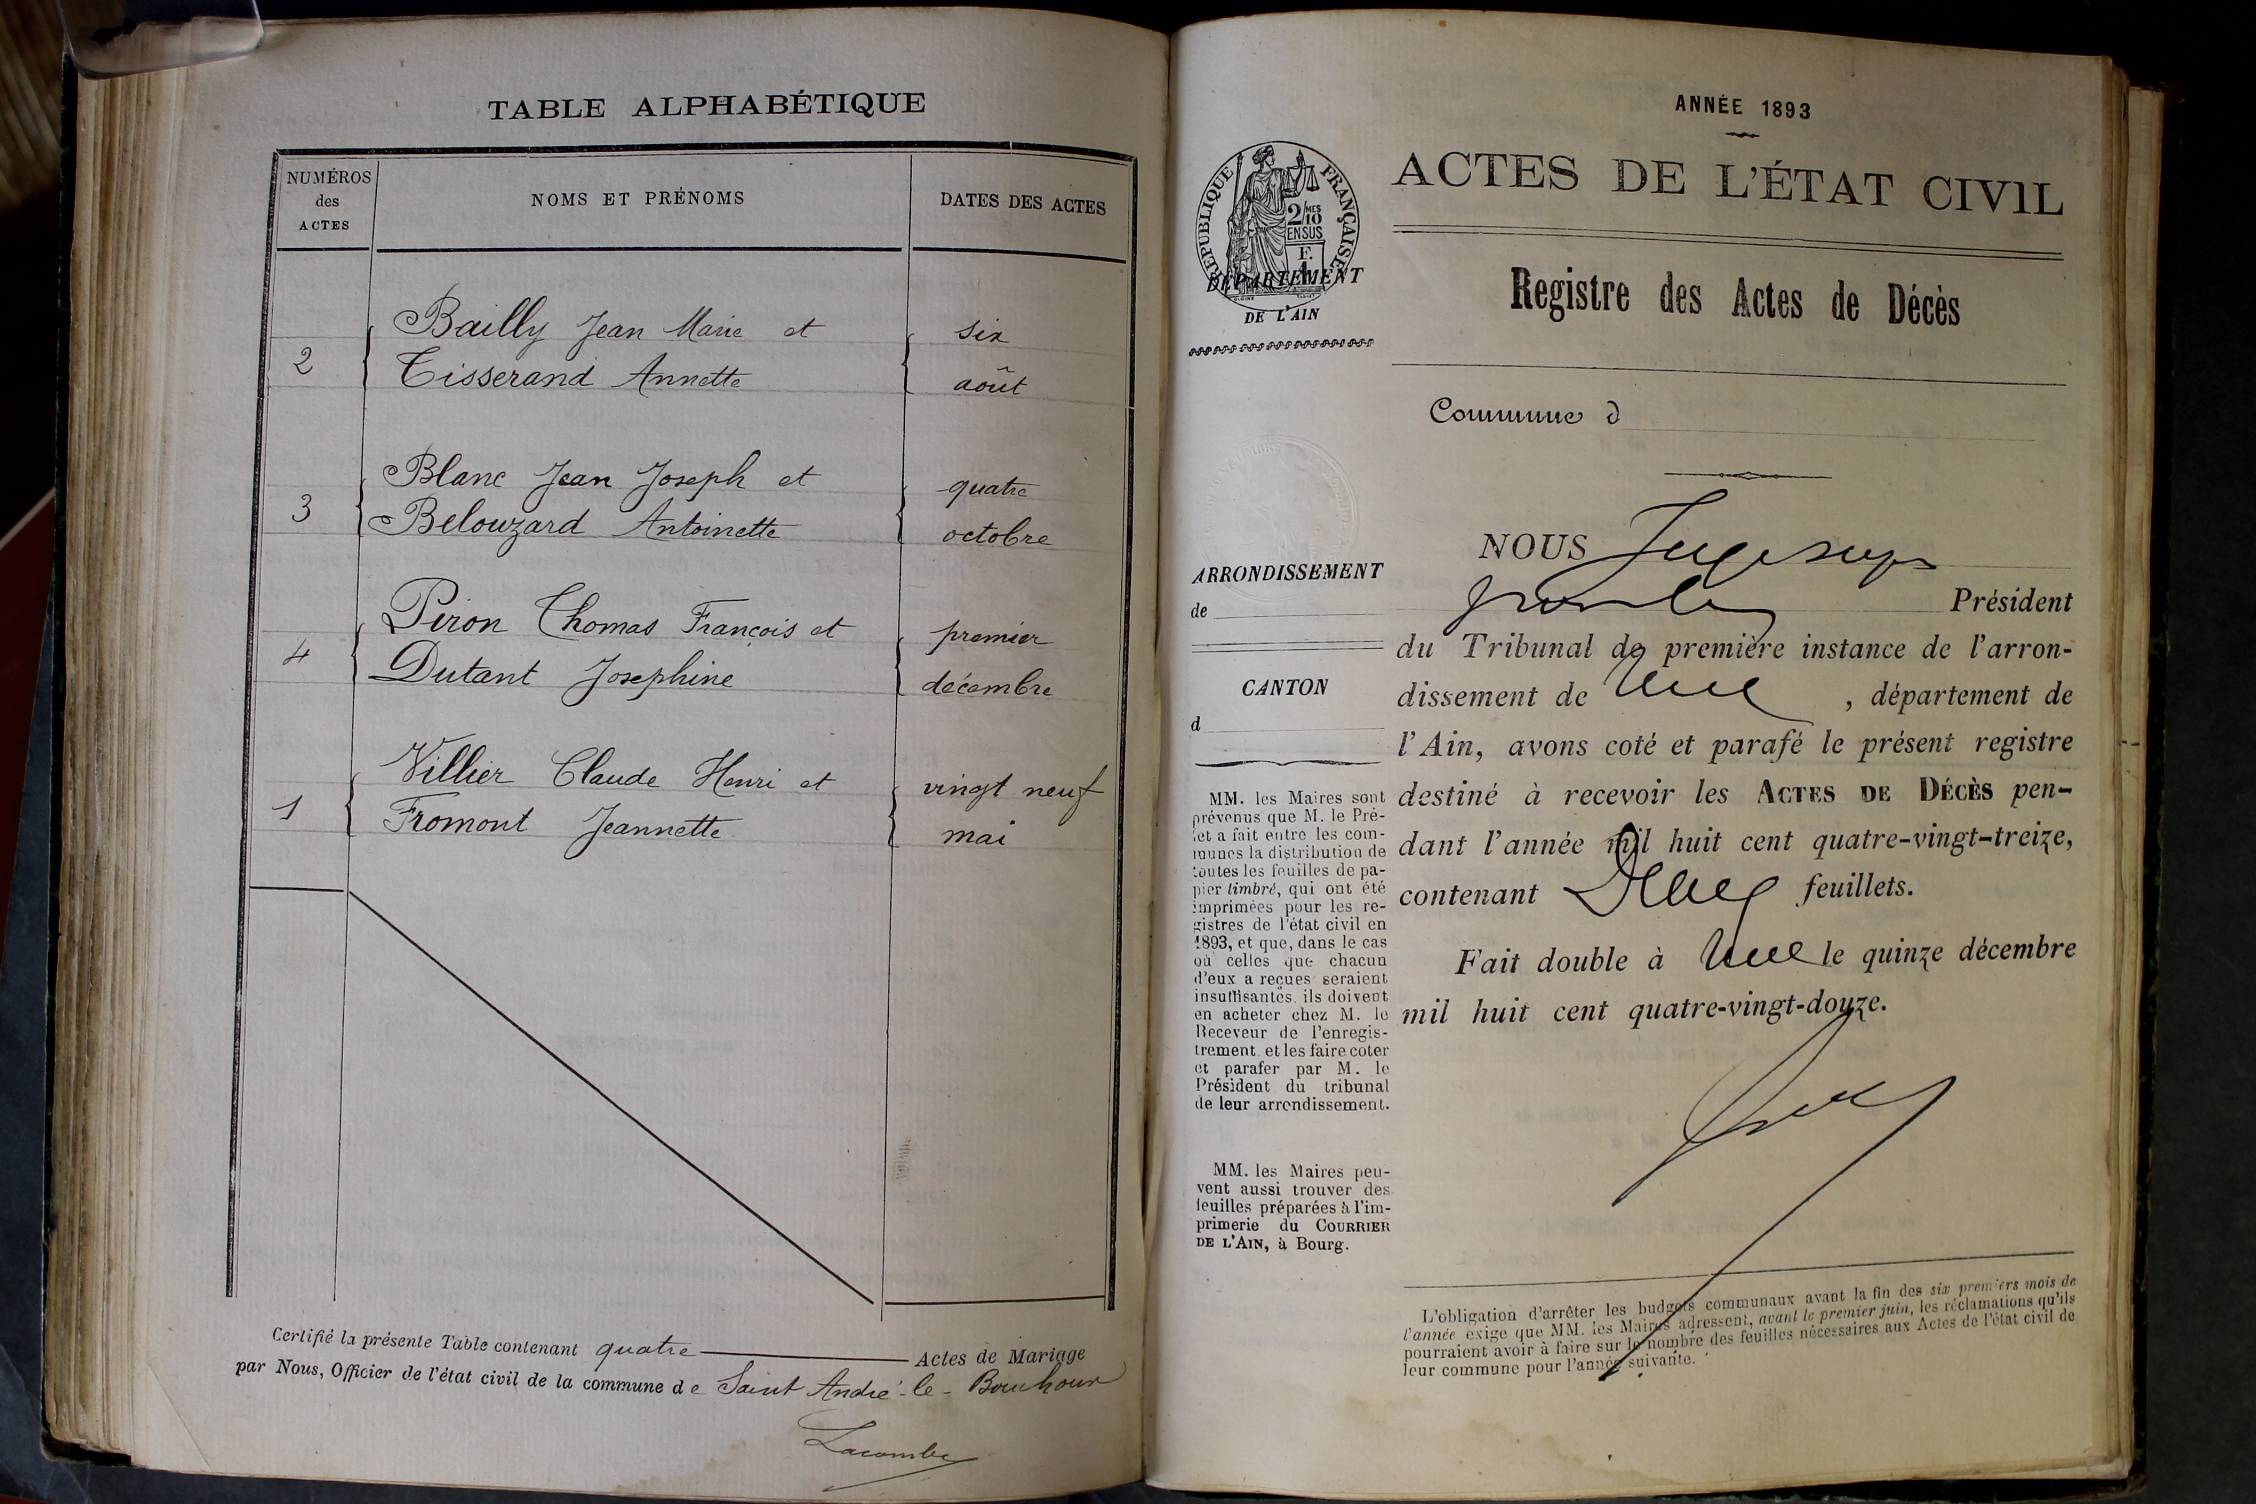 TABLE ALPHABÉTIQUE
NUMÉROS
des
ACTES
NOMS ET PRÉNOMS
DATES DES ACTES
2
Bailly Jean Marie et
six
Tisserand Annette
août
3
Blanc Jean Joseph et
quatre
Belouzard Antoinette
octobre
4
Piron Thomas François et
premier
Dutant Josephine
décembre
1
Villier Claude Henri et
vingt neuf
Fromont Jeannette
mai
Certifié la présente Table contenant quatre Actes de Mariage
par Nous, Officier de l'état civil de la commune de Saint André-le-Bouchoux
Lacombe
ANNÉE 1893
ACTES DE L'ÉTAT CIVIL
RÉPUBLIQUE FRANÇAISE
2/10 MES
EN SUS
F.
1
DÉPARTEMENT
DE L'AIN
Registre des Actes de Décès
Commune d
ARRONDISSEMENT
de
CANTON
d
MM. les Maires sont
prévenus que M. le Pré-
fet a fait entre les com-
munes la distribution de
toutes les feuilles de pa-
pier timbré, qui ont été
imprimées pour les re-
gistres de l'état civil en
1893, et que, dans le cas
où celles que chacun
d'eux a reçues seraient
insuffisantes, ils doivent
en acheter chez M. le
Receveur de l'enregis-
trement et les faire coter
et parafer par M. le
Président du tribunal
de leur arrondissement.
MM. les Maires peu-
vent aussi trouver des
feuilles préparées à l'im-
primerie du COURRIER
DE L'AIN, à Bourg.
NOUS
Président
du Tribunal de première instance de l'arron-
dissement de , département de
l'Ain, avons coté et parafé le présent registre
destiné à recevoir les ACTES DE DÉCÈS pen-
dant l'année mil huit cent quatre-vingt-treize,
contenant feuillets.
Fait double à le quinze décembre
mil huit cent quatre-vingt-douze.
L'obligation d'arrêter les budgets communaux avant la fin des six premiers mois de
l'année exige que MM. les Maires adressent, avant le premier juin, les réclamations qu'ils
pourraient avoir à faire sur le nombre des feuilles nécessaires aux Actes de l'état civil de
leur commune pour l'année suivante.